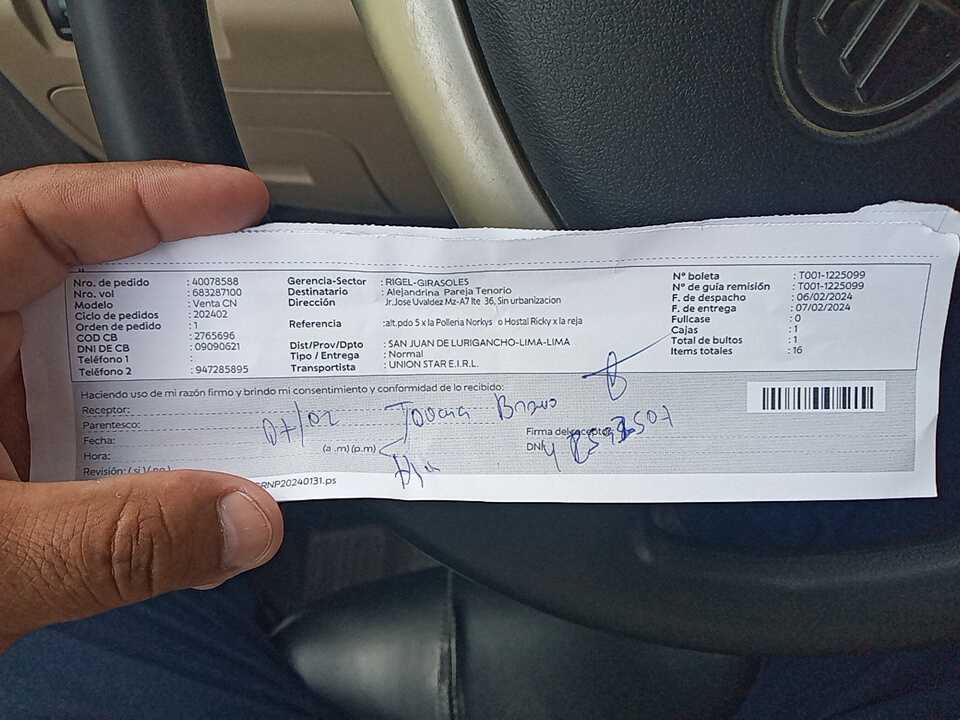 Nro. de pedido : 40078588
Nro. vol : 683287100
Modelo : Venta CN
Ciclo de pedidos : 202402
Orden de pedido : 1
COD CB : 2765696
DNI DE CB : 09090621
Teléfono 1 :
Teléfono 2 : 947285895
Gerencia-Sector : RIGEL-GIRASOLES
Destinatario : Alejandrina Pareja Tenorio
Dirección : Jr.Jose Uvaldez Mz-A7 lte 36, Sin urbanizacion
Referencia :alt.pdo 5 x la Polleria Norkys o Hostal Ricky x la reja
Dist/Prov/Dpto : SAN JUAN DE LURIGANCHO-LIMA-LIMA
Tipo / Entrega : Normal
Transportista : UNION STAR E.I.R.L.
N° boleta : T001-1225099
N° de guía remisión : T001-1225099
F. de despacho : 06/02/2024
F. de entrega : 07/02/2024
Fullcase : 0
Cajas : 1
Total de bultos : 1
Items totales : 16
Haciendo uso de mi razón firmo y brindo mi consentimiento y conformidad de lo recibido:
Receptor:
Parentesco:
Fecha: 07/02
Hora: (a .m) (p.m)
Revisión: ( si ) ( no )
Firma del receptor
DNI
GRNP20240131.ps